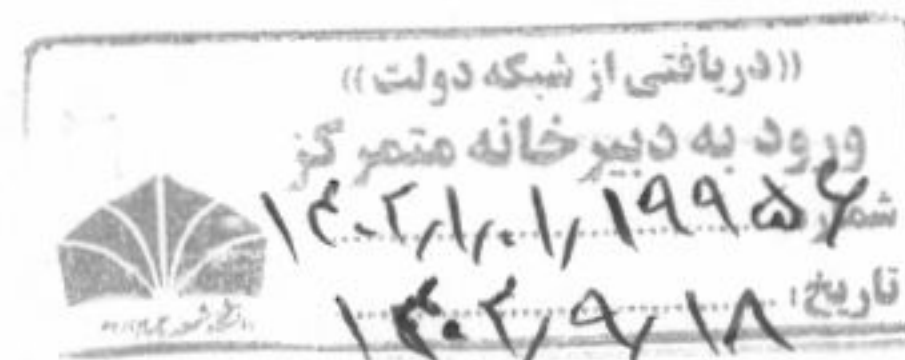 ((دریافتی از شبکه دولت))
ورود به دبیرخانه متمرکز
شماره ۱۴۰۲/۱/۰۱/۱۹۹۵۶
تاریخ: ۱۴۰۲/۹/۱۸